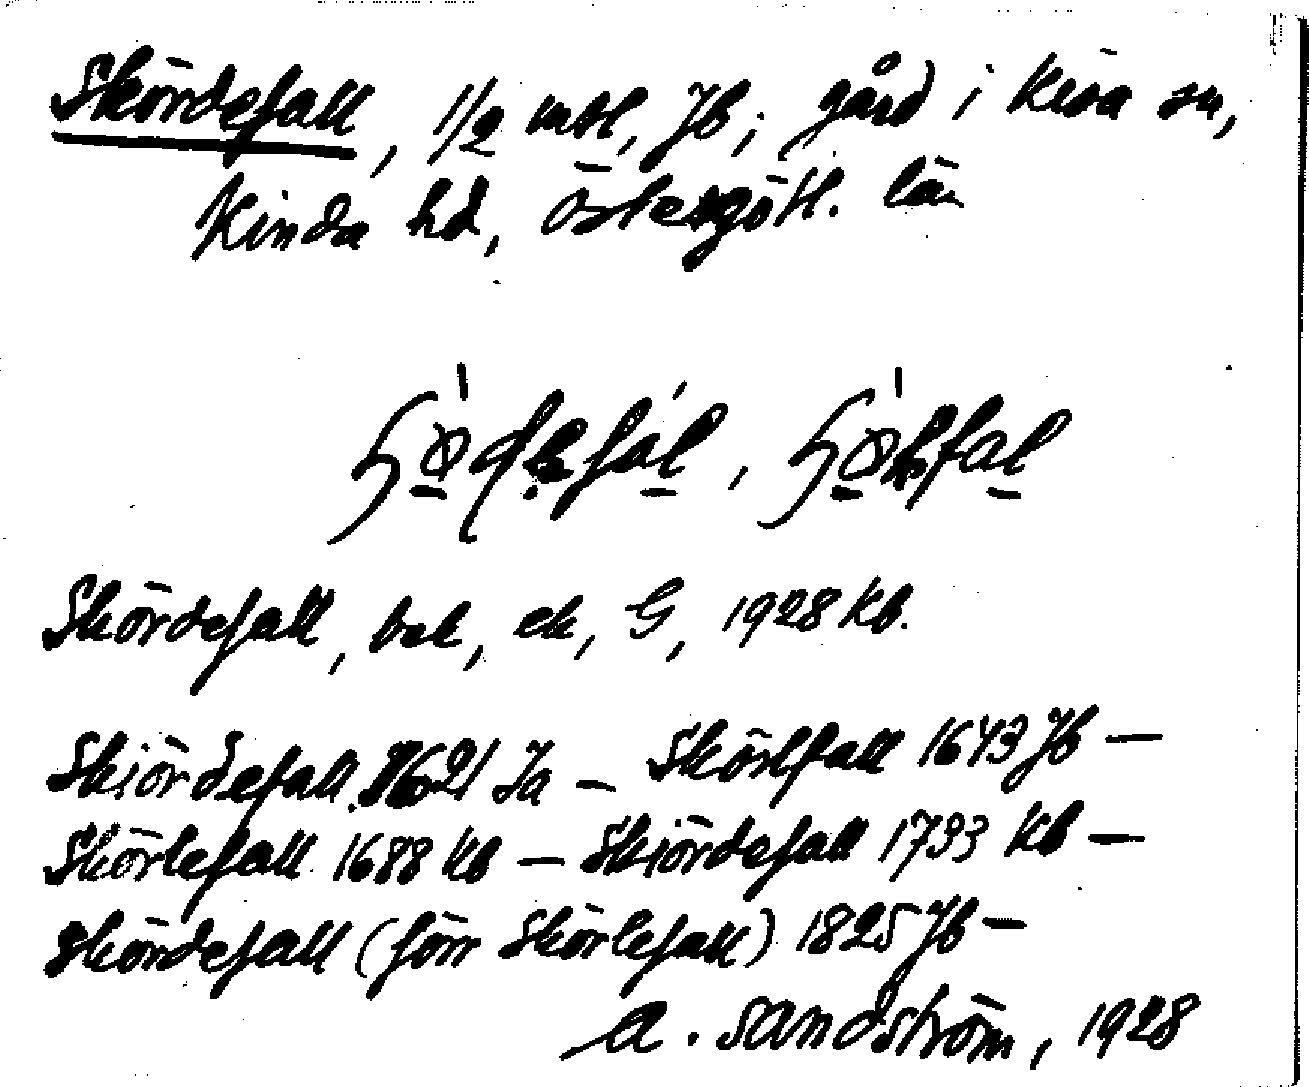 Skördefall, 1/2 mtl, Jb; gård i Kisa sn,
Kinda hd, Östergötl. län
Skördefall, bel, ek, G, 1928 Kb.
Skiördefall 1621 Ja – Skörlfall 1643 Jb –
Skörlefall 1688 Kb – Skiördefall 1793 Kb –
Skördefall (förr Skörlefall) 1825 Jb –
A. Sandström, 1928